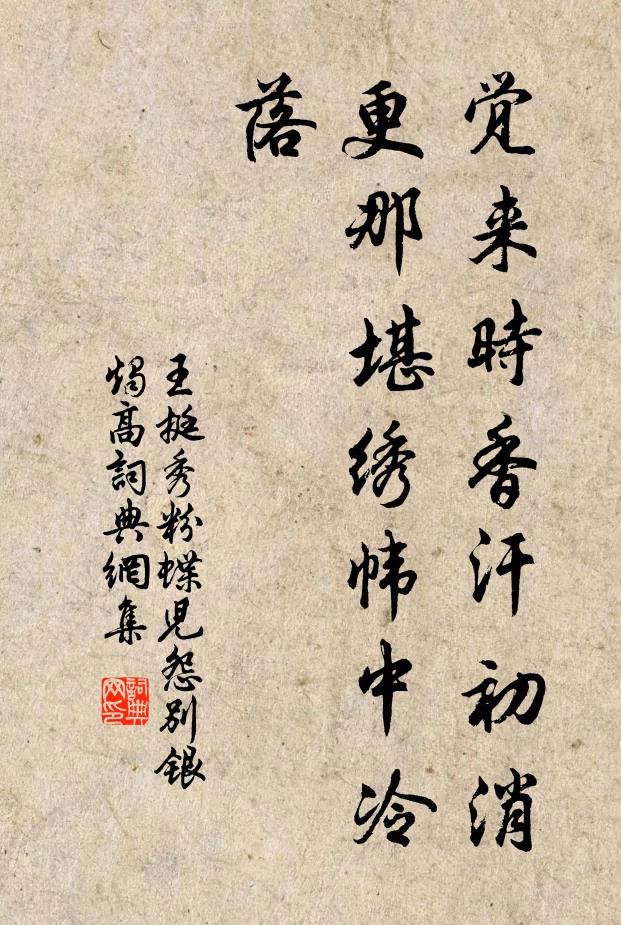 觉来時香汗初消
更那堪绣帏中冷
落
王挺秀粉蝶児怨别银
烛高詞典網集
詞典
网印